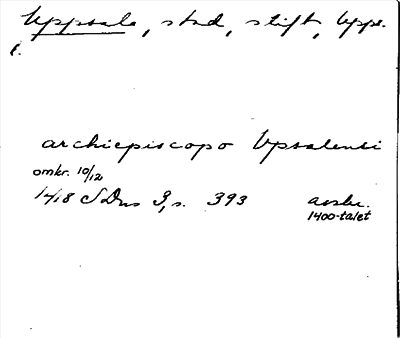 Uppsala, stad, stift, Uppl.
archiepiscopo Upsalensi
omkr. 10/12
1418 SDns 3, s. 393 avskr.
1400-talet